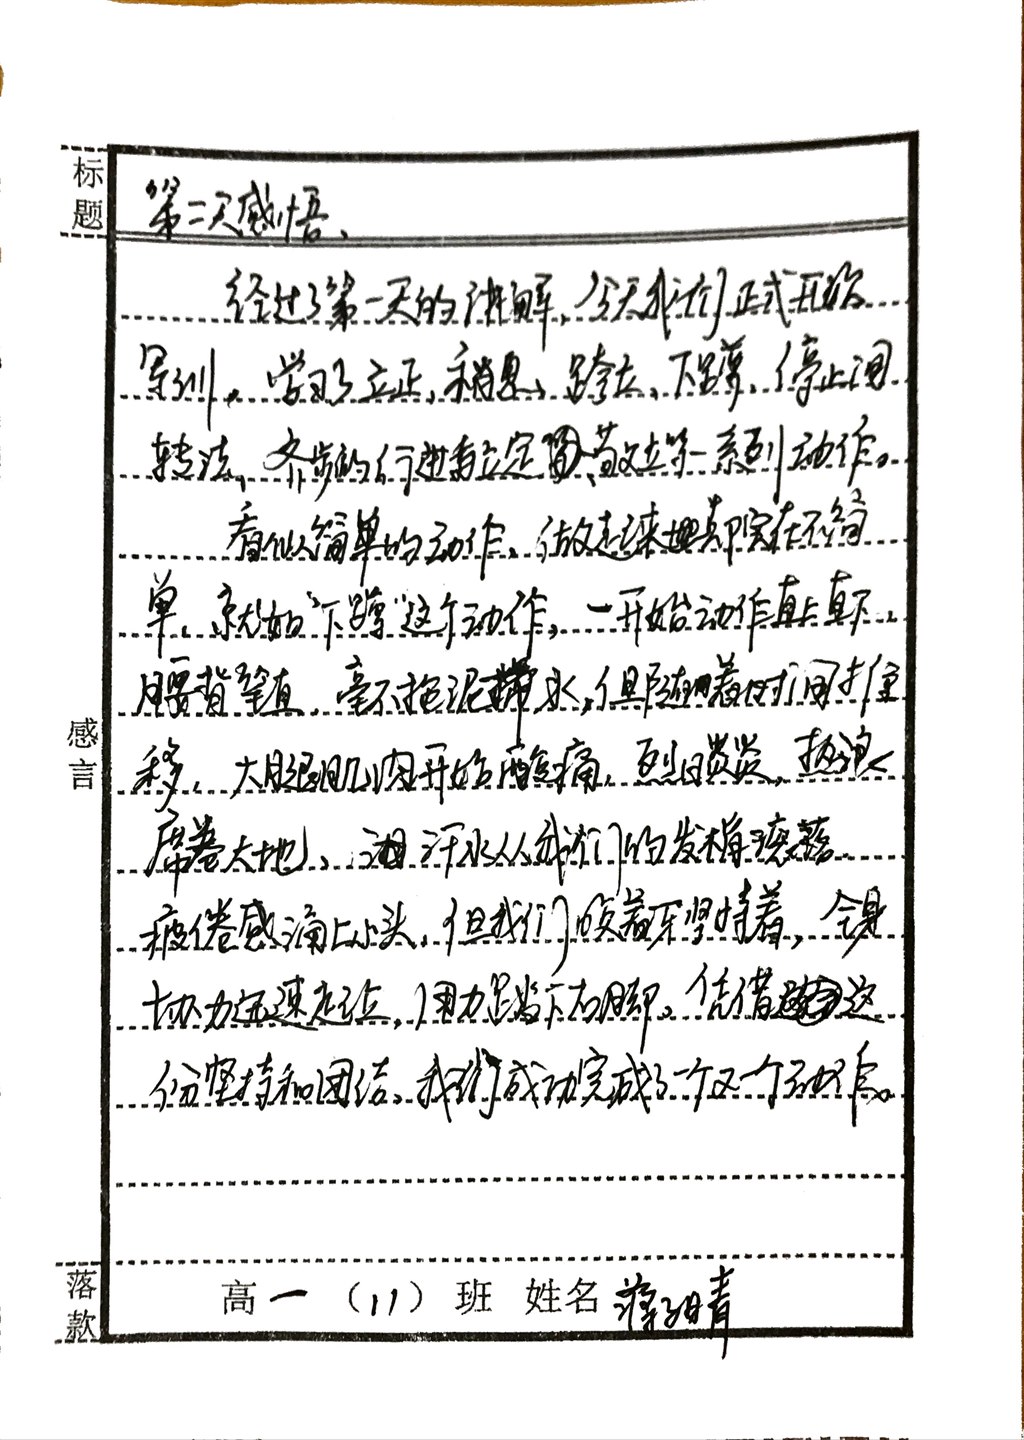 标题
第二天感悟、
经过了第一天的讲解,今天我们正式开始
军训。学习了立正、稍息、跨立、下蹲、停止间
转法、齐步的行进与立定、敬礼等一系列动作。
看似简单的动作,做起来却实在不简
单。就如“下蹲”这个动作,一开始动作直上直下、
腰背挺直,毫不拖泥带水,但随着时间推
移,大腿肌肉开始酸痛。烈日炎炎,热浪
席卷大地,汗水从我们的发梢滚落
疲倦感涌上心头,但我们咬着牙坚持着,全身
协力迅速起立,用力蹬下右脚。凭借这
份坚持和团结,我们成功完成了一个又一个动作。
感言
落款
高一(11)班 姓名